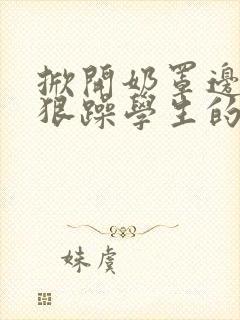 掀開奶罩邊
狠躁學生的
妹虞